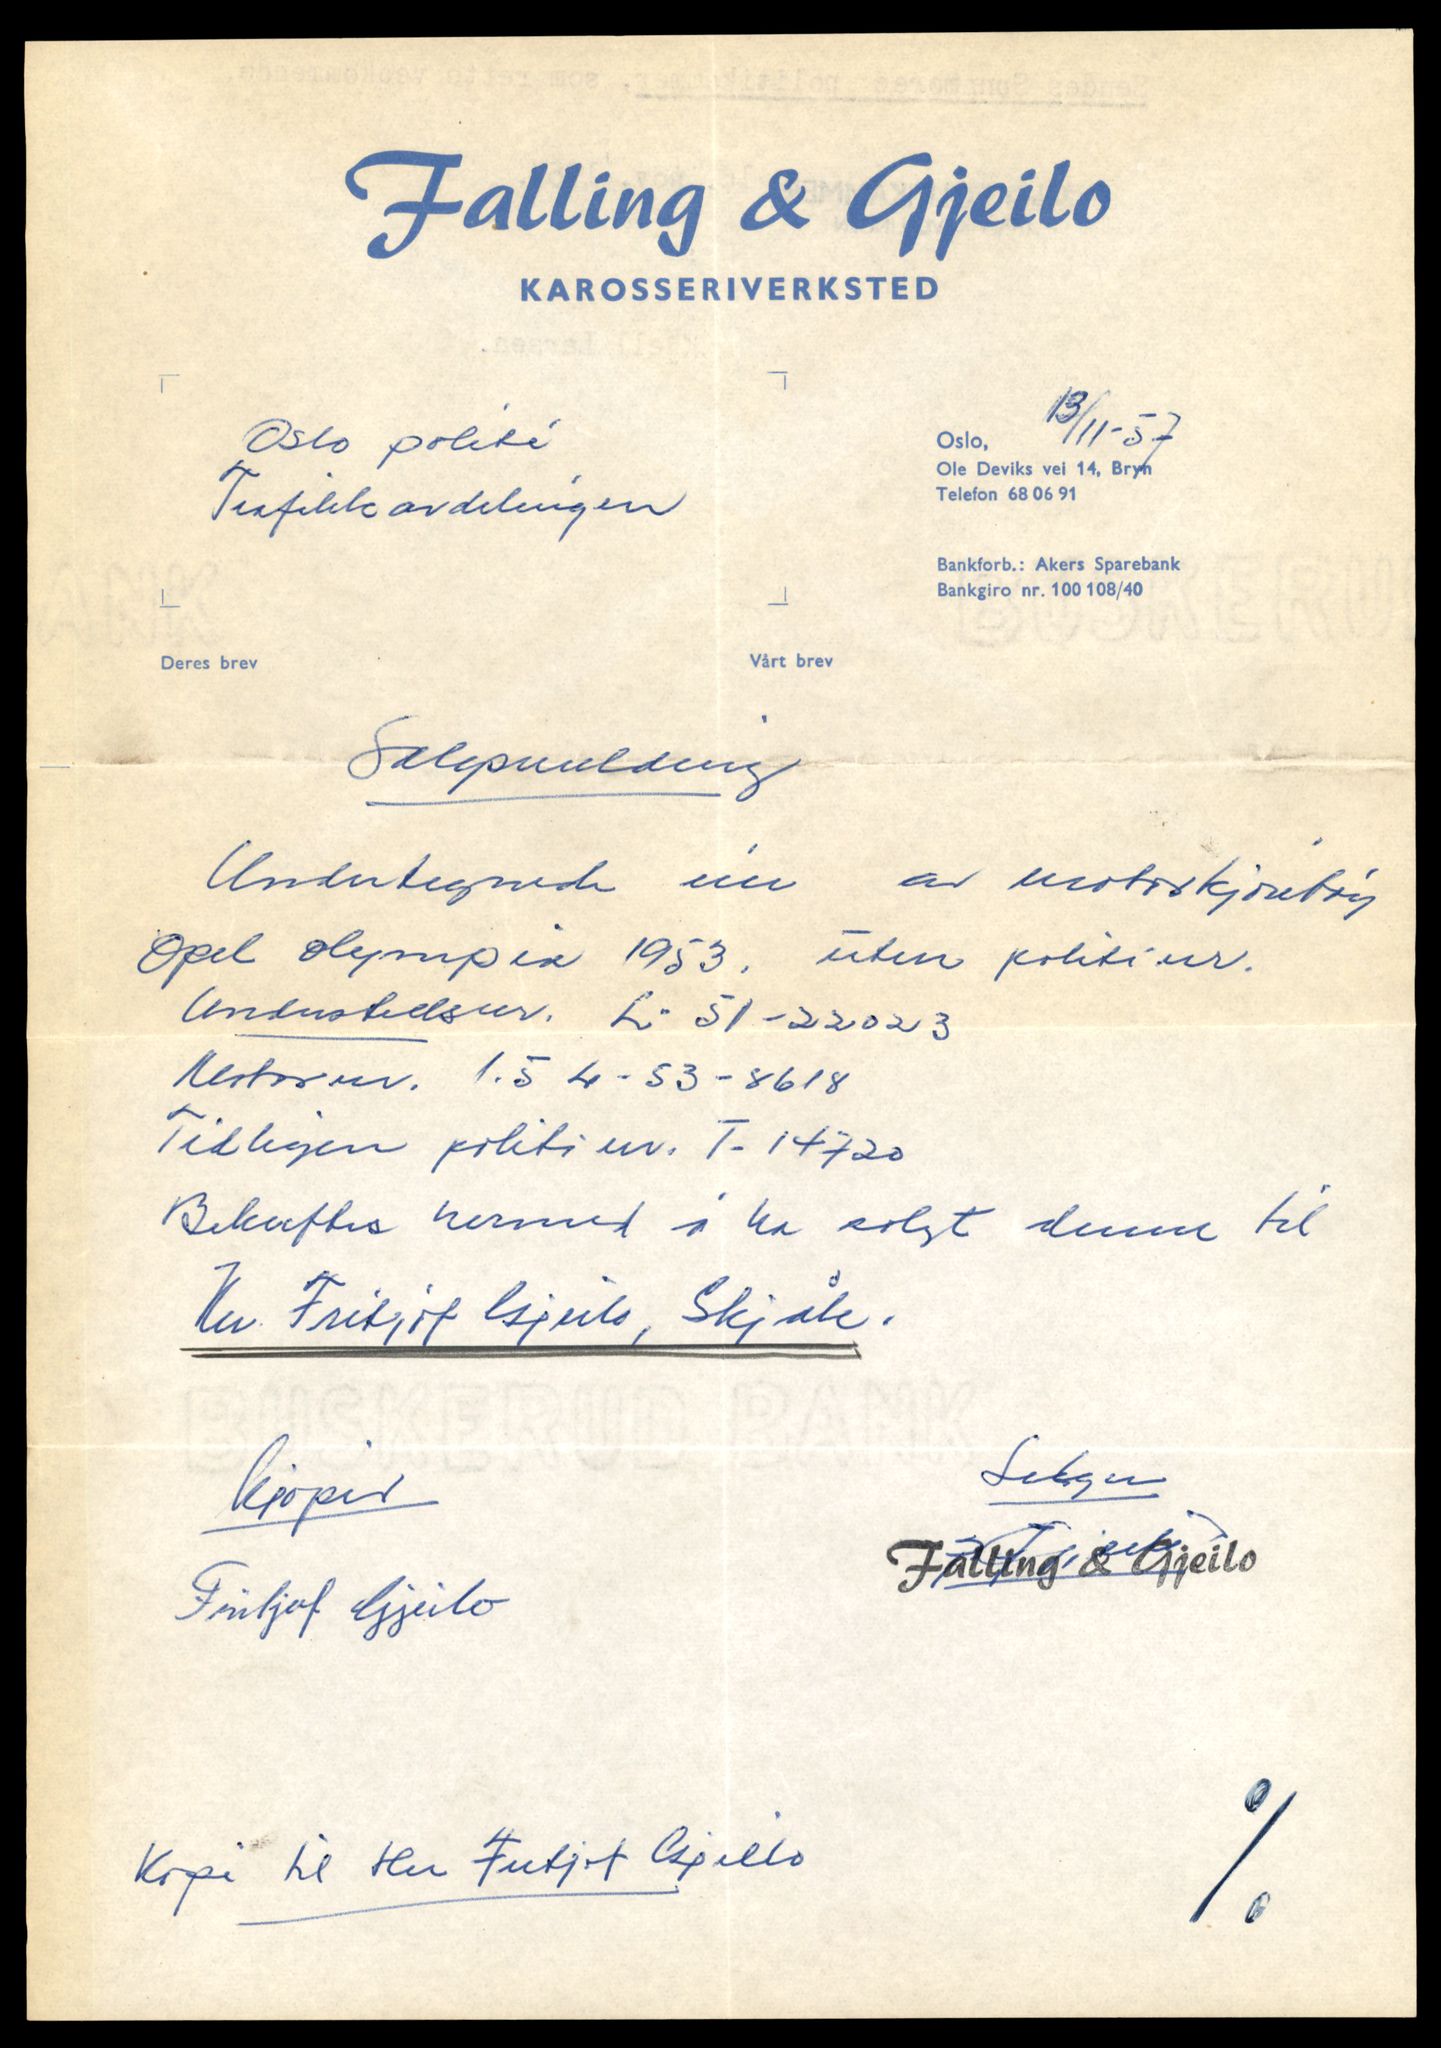 Falling & Gjeilo
KAROSSERIVERKSTED
Oslo politi
Trafikkavdelingen
Oslo, 13/11-57
Ole Deviks vei 14, Bryn
Telefon 68 06 91
Bankforb.: Akers Sparebank
Bankgiro nr. 100 108/40
Deres brev
Vårt brev
Salgsmelding
Undertegnede eier av motorkjøretøy
Opel Olympia 1953. uten politi nr.
Understellsnr. L- 51-22023
Motor nr. 1.5 L-53-8618
Tidligere politi nr. T- 14720
Bekreftes hermed å ha solgt denne til
Herr Fritjof Gjeilo, Skjåk.
Kjøper
Selger
Fritjof Gjeilo
Falling & Gjeilo
Kopi til Herr Fritjof Gjeilo
%